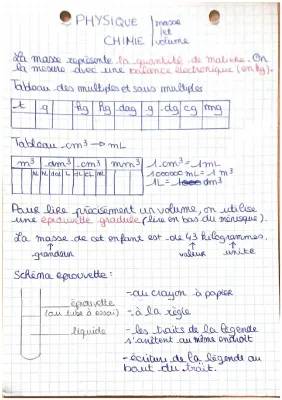 PHYSIQUE
CHIMIE
masse
et
volume
La masse représente la quantité de matière. On
la mesure avec une balance électronique (en kg).
Tableau des multiples et sous multiples
t q kg hg dag g dg cg mg
Tableau cm³ → mL
m³ dm³ cm³ mm³
hL daL L dL cL mL
1 cm³ = 1mL
1000000 mL = 1 m³
1L = dm³
Pour lire précisément un volume, on utilise
une éprouvette graduée (lire en bas du ménisque).
La masse de cet enfant est de 43 kilogrammes.
grandeur valeur unité
Schéma éprouvette :
éprouvette
(ou tube à essai)
liquide
- au crayon à papier
- à la règle
- les traits de la légende
s'arrêtent au même endroit
- écriture de la légende au
bout du trait.